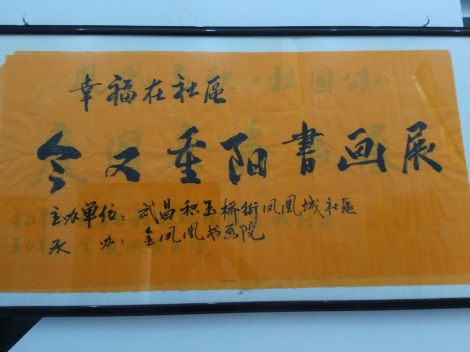 幸福在社区
今又重阳書画展
主办单位：武昌积玉桥街凤凰城社区
承办：金凤凰书画院